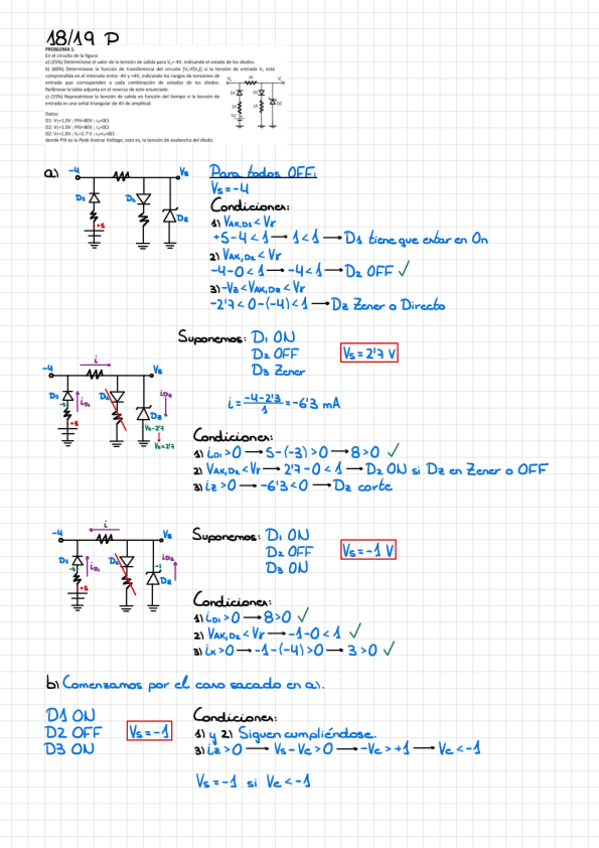 18/19 P
PROBLEMA 1.
En el circuito de la figura:
a) (25%) Determínese el valor de la tensión de salida para Ve=-4V, indicando el estado de los diodos.
b) (60%) Determínese la función de transferencia del circuito (Vs=f(Ve)) si la tensión de entrada Ve está
comprendida en el intervalo entre -4V y +4V, indicando los rangos de tensiones de
entrada que corresponden a cada combinación de estados de los diodos.
Rellénese la tabla adjunta en el reverso de este enunciado.
c) (15%) Represéntese la tensión de salida en función del tiempo si la tensión de
entrada es una señal triangular de 4V de amplitud.
Datos:
donde PIV es la Peak Inverse Voltage, esto es, la tensión de avalancha del diodo.
a)
-4
Vs
D1
D2
Dz
+5
Para todos OFF:
Vs=-4
Condiciones:
1) VAK,D1 < Vγ
+5-4<1 → 1<1 → D1 tiene que estar en On
2) VAK,D2 < Vγ
-4-0<1 → -4<1 → D2 OFF ✓
3) -Vz<VAK,Dz<Vγ
-2'7<0-(-4)<1 → Dz Zener o Directo
Suponemos: D1 ON
D2 OFF
D3 Zener
Vs=2'7 V
-4
i
Vs
D1
iD1
D2
iDz
Dz
+5
Vs-2'7
Vs=2'7
i=-4-2'3/1=-6'3 mA
Condiciones:
1) iD1>0 → 5-(-3)>0 → 8>0 ✓
2) VAK,D2<Vγ → 2'7-0<1 → D2 ON si Dz en Zener o OFF
3) iz>0 → -6'3<0 → Dz corte
-4
i
Vs
D1
iD1
D2
iDz
Dz
+5
Suponemos: D1 ON
D2 OFF
D3 ON
Vs=-1 V
Condiciones:
1) iD1>0 → 8>0 ✓
2) VAK,D2<Vγ → -1-0<1 ✓
3) iz>0 → -1-(-4)>0 → 3>0 ✓
b) Comenzamos por el caso sacado en a).
D1 ON
D2 OFF
D3 ON
Vs=-1
Condiciones:
1) y 2) Siguen cumpliéndose.
3) iz>0 → Vs-Ve>0 → -Ve>+1 → Ve<-1
Vs=-1 si Ve<-1